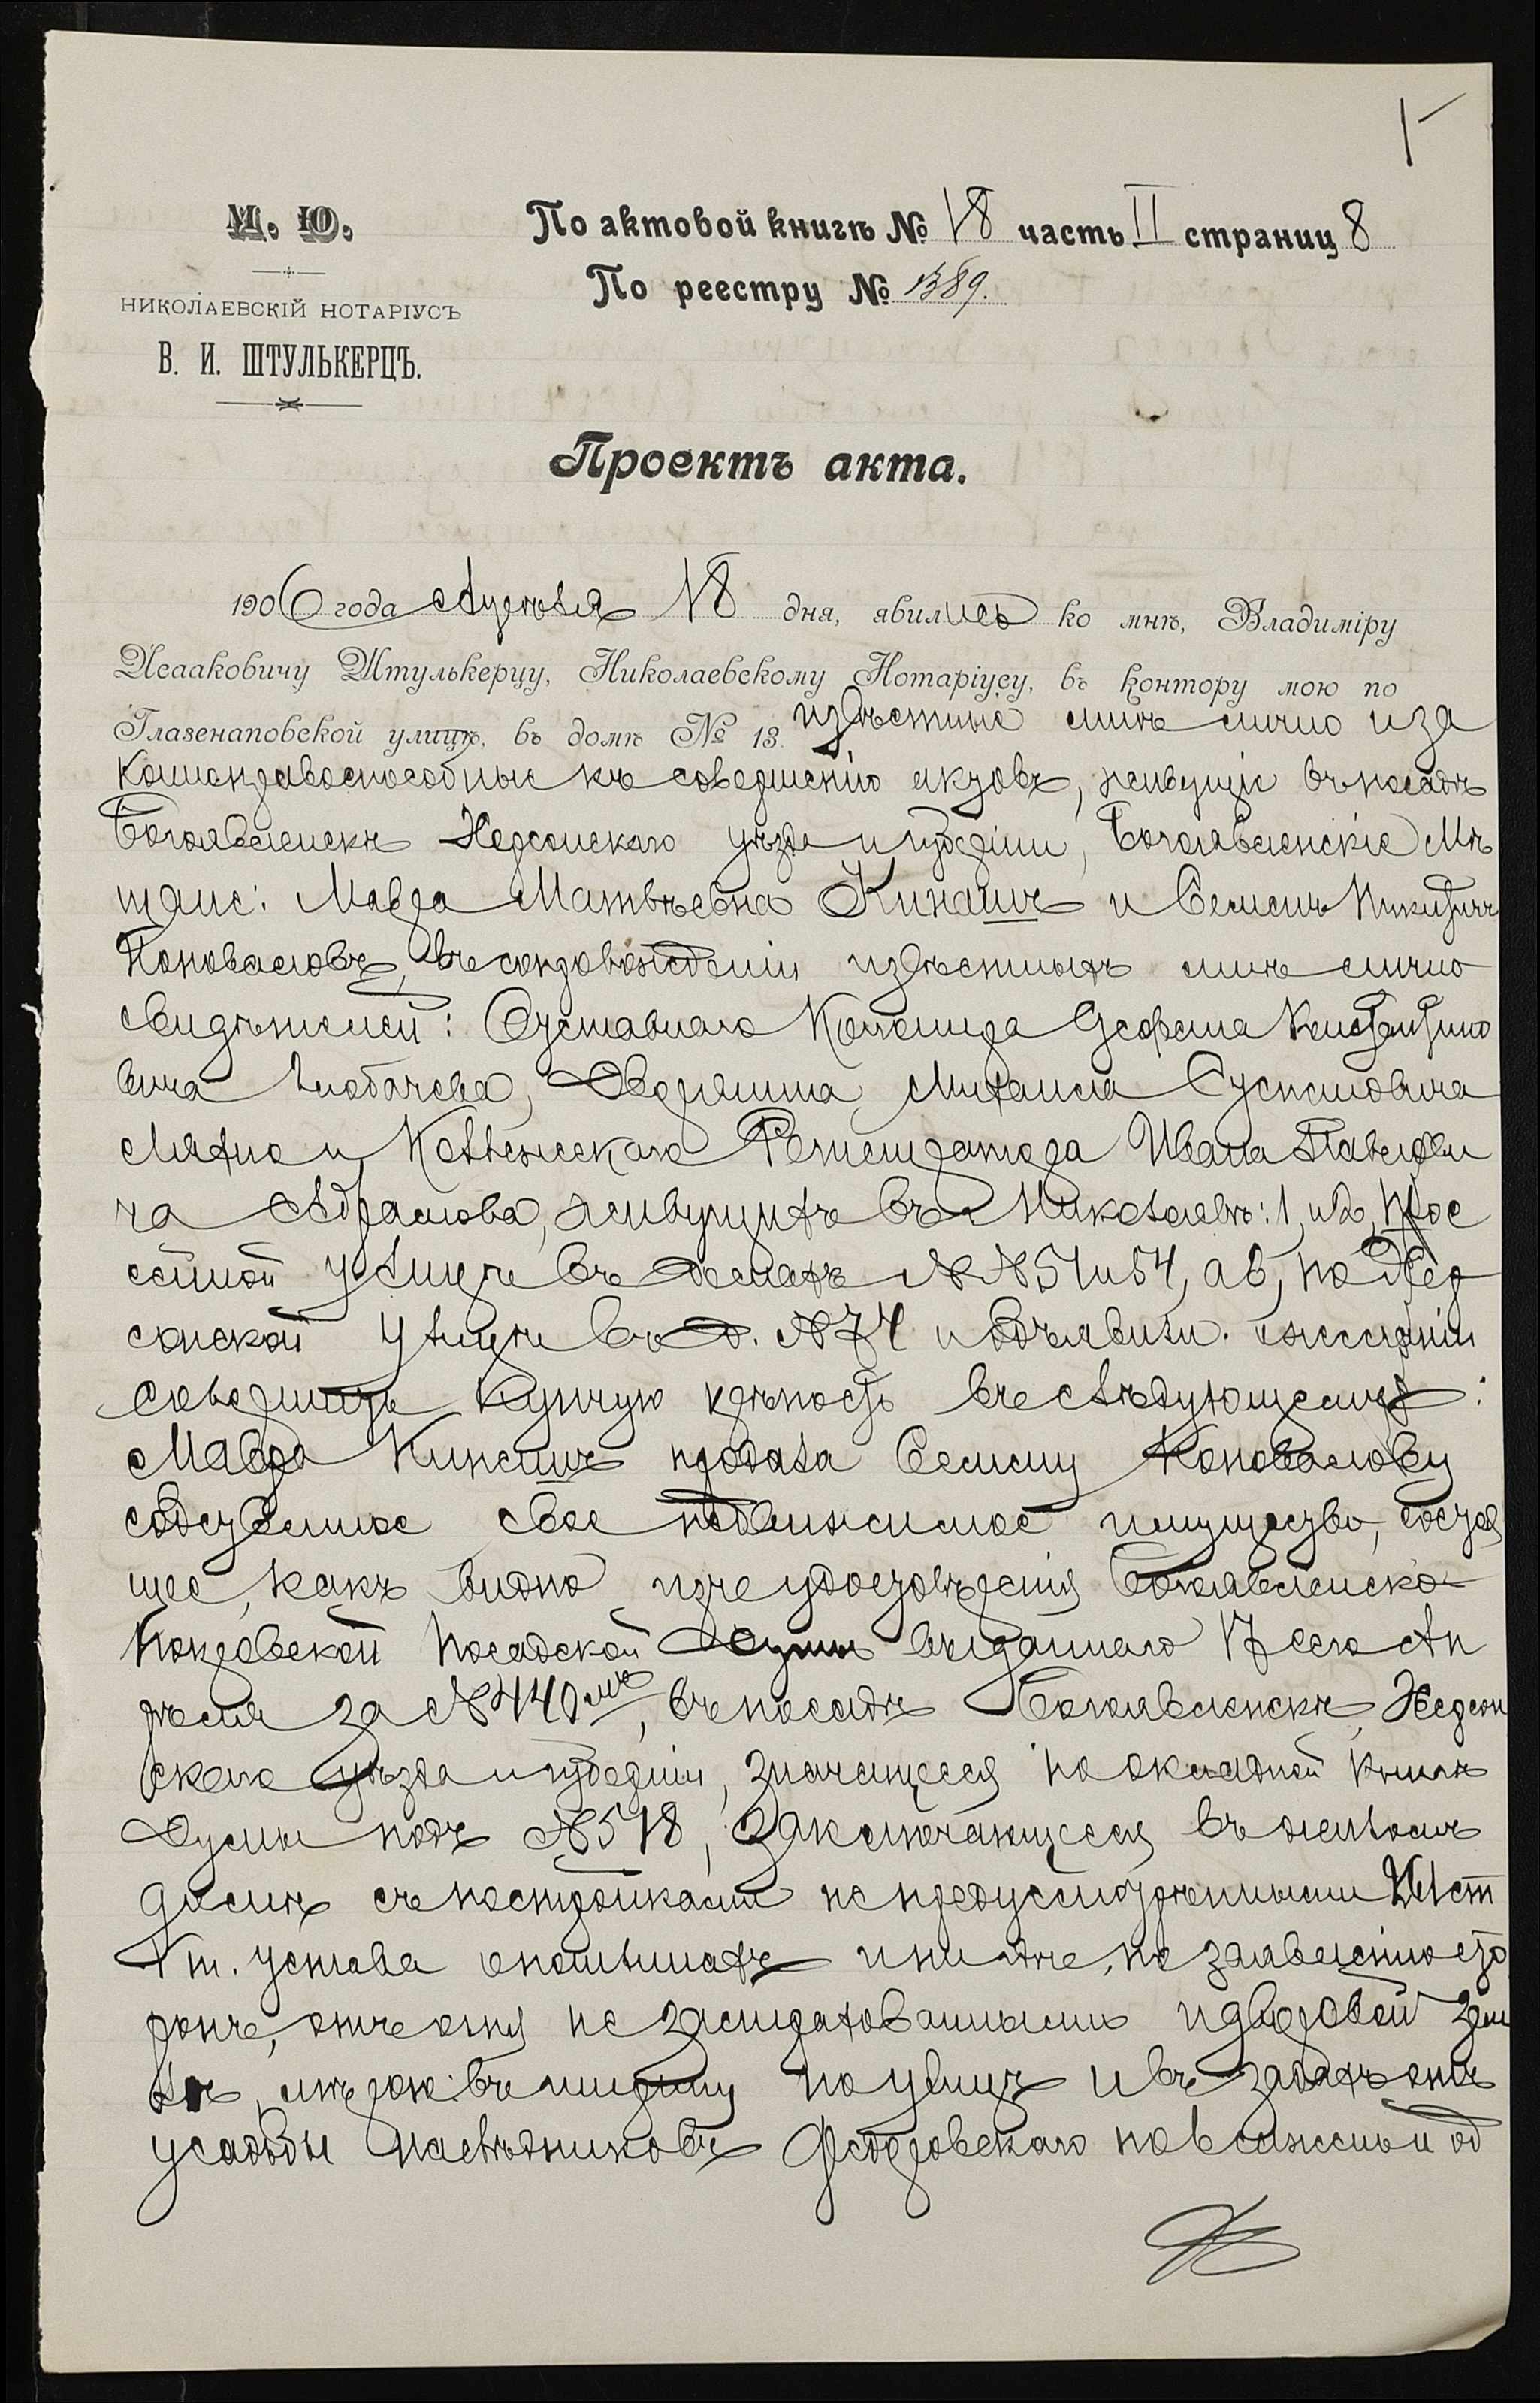 М. Ю.
НИКОЛАЕВСКІЙ НОТАРІУСЪ
В. И. ШТУЛЬКЕРЦЪ.
По актовой книгѣ № 18 часть II страниц 8
По реестру № 1389.
Проектъ акта.
1906 года Апрѣля 18 дня, явились ко мнѣ, Владиміру
Исааковичу Штулькерцу, Николаевскому Нотаріусу, въ контору мою по
Глазенаповской улицѣ, въ домѣ № 13 извѣстные мнѣ лично и за
коннорaвоспособные къ совершенію актовъ, живущіе въ посадѣ
Богоявленскѣ Херсонскаго уѣзда и губерніи, Богоявленскіе Мѣ
щане: Мавра Матвѣевна Кинашъ и Семенъ Никитичъ
Коноваловъ, въ сопровожденіи извѣстныхъ мнѣ лично
свидѣтелей: Отставного Константино
вича Дворянина Михаила
и Коллежскаго Регистратора Ивана Павлови
ча Абрамова, живущихъ въ Николаевѣ: 1 и 2,
улицѣ въ домахъ №№ 51 и 54, а 3, по Хер
сонской улицѣ въ д. № 74 и объявили о желаніи
совершить купчую крѣпость въ слѣдующемъ:
Мавра Кинашъ продала Семену Коновалову
собственное свое недвижимое имущество, состоя
щее, какъ видно изъ удостовѣренія Богоявленско-
Покровской Посадской Думы выданнаго 17 сего Ап
рѣля за № 440мъ, въ посадѣ Богоявленскѣ, Херсон
скаго уѣзда и губерніи, значащееся по окладной книгѣ
Думы подъ № 518, заключающееся въ жиломъ
домѣ съ постройками не предусмотрѣнными ст
т. устава о пошлинахъ и нигдѣ, по заявленію сто
ронъ, отъ огня не застрахованными и дворовой зем
лѣ, мѣрою: въ ширину по улицѣ и въ задахъ отъ
усадьбы наслѣдниковъ Федоровскаго по